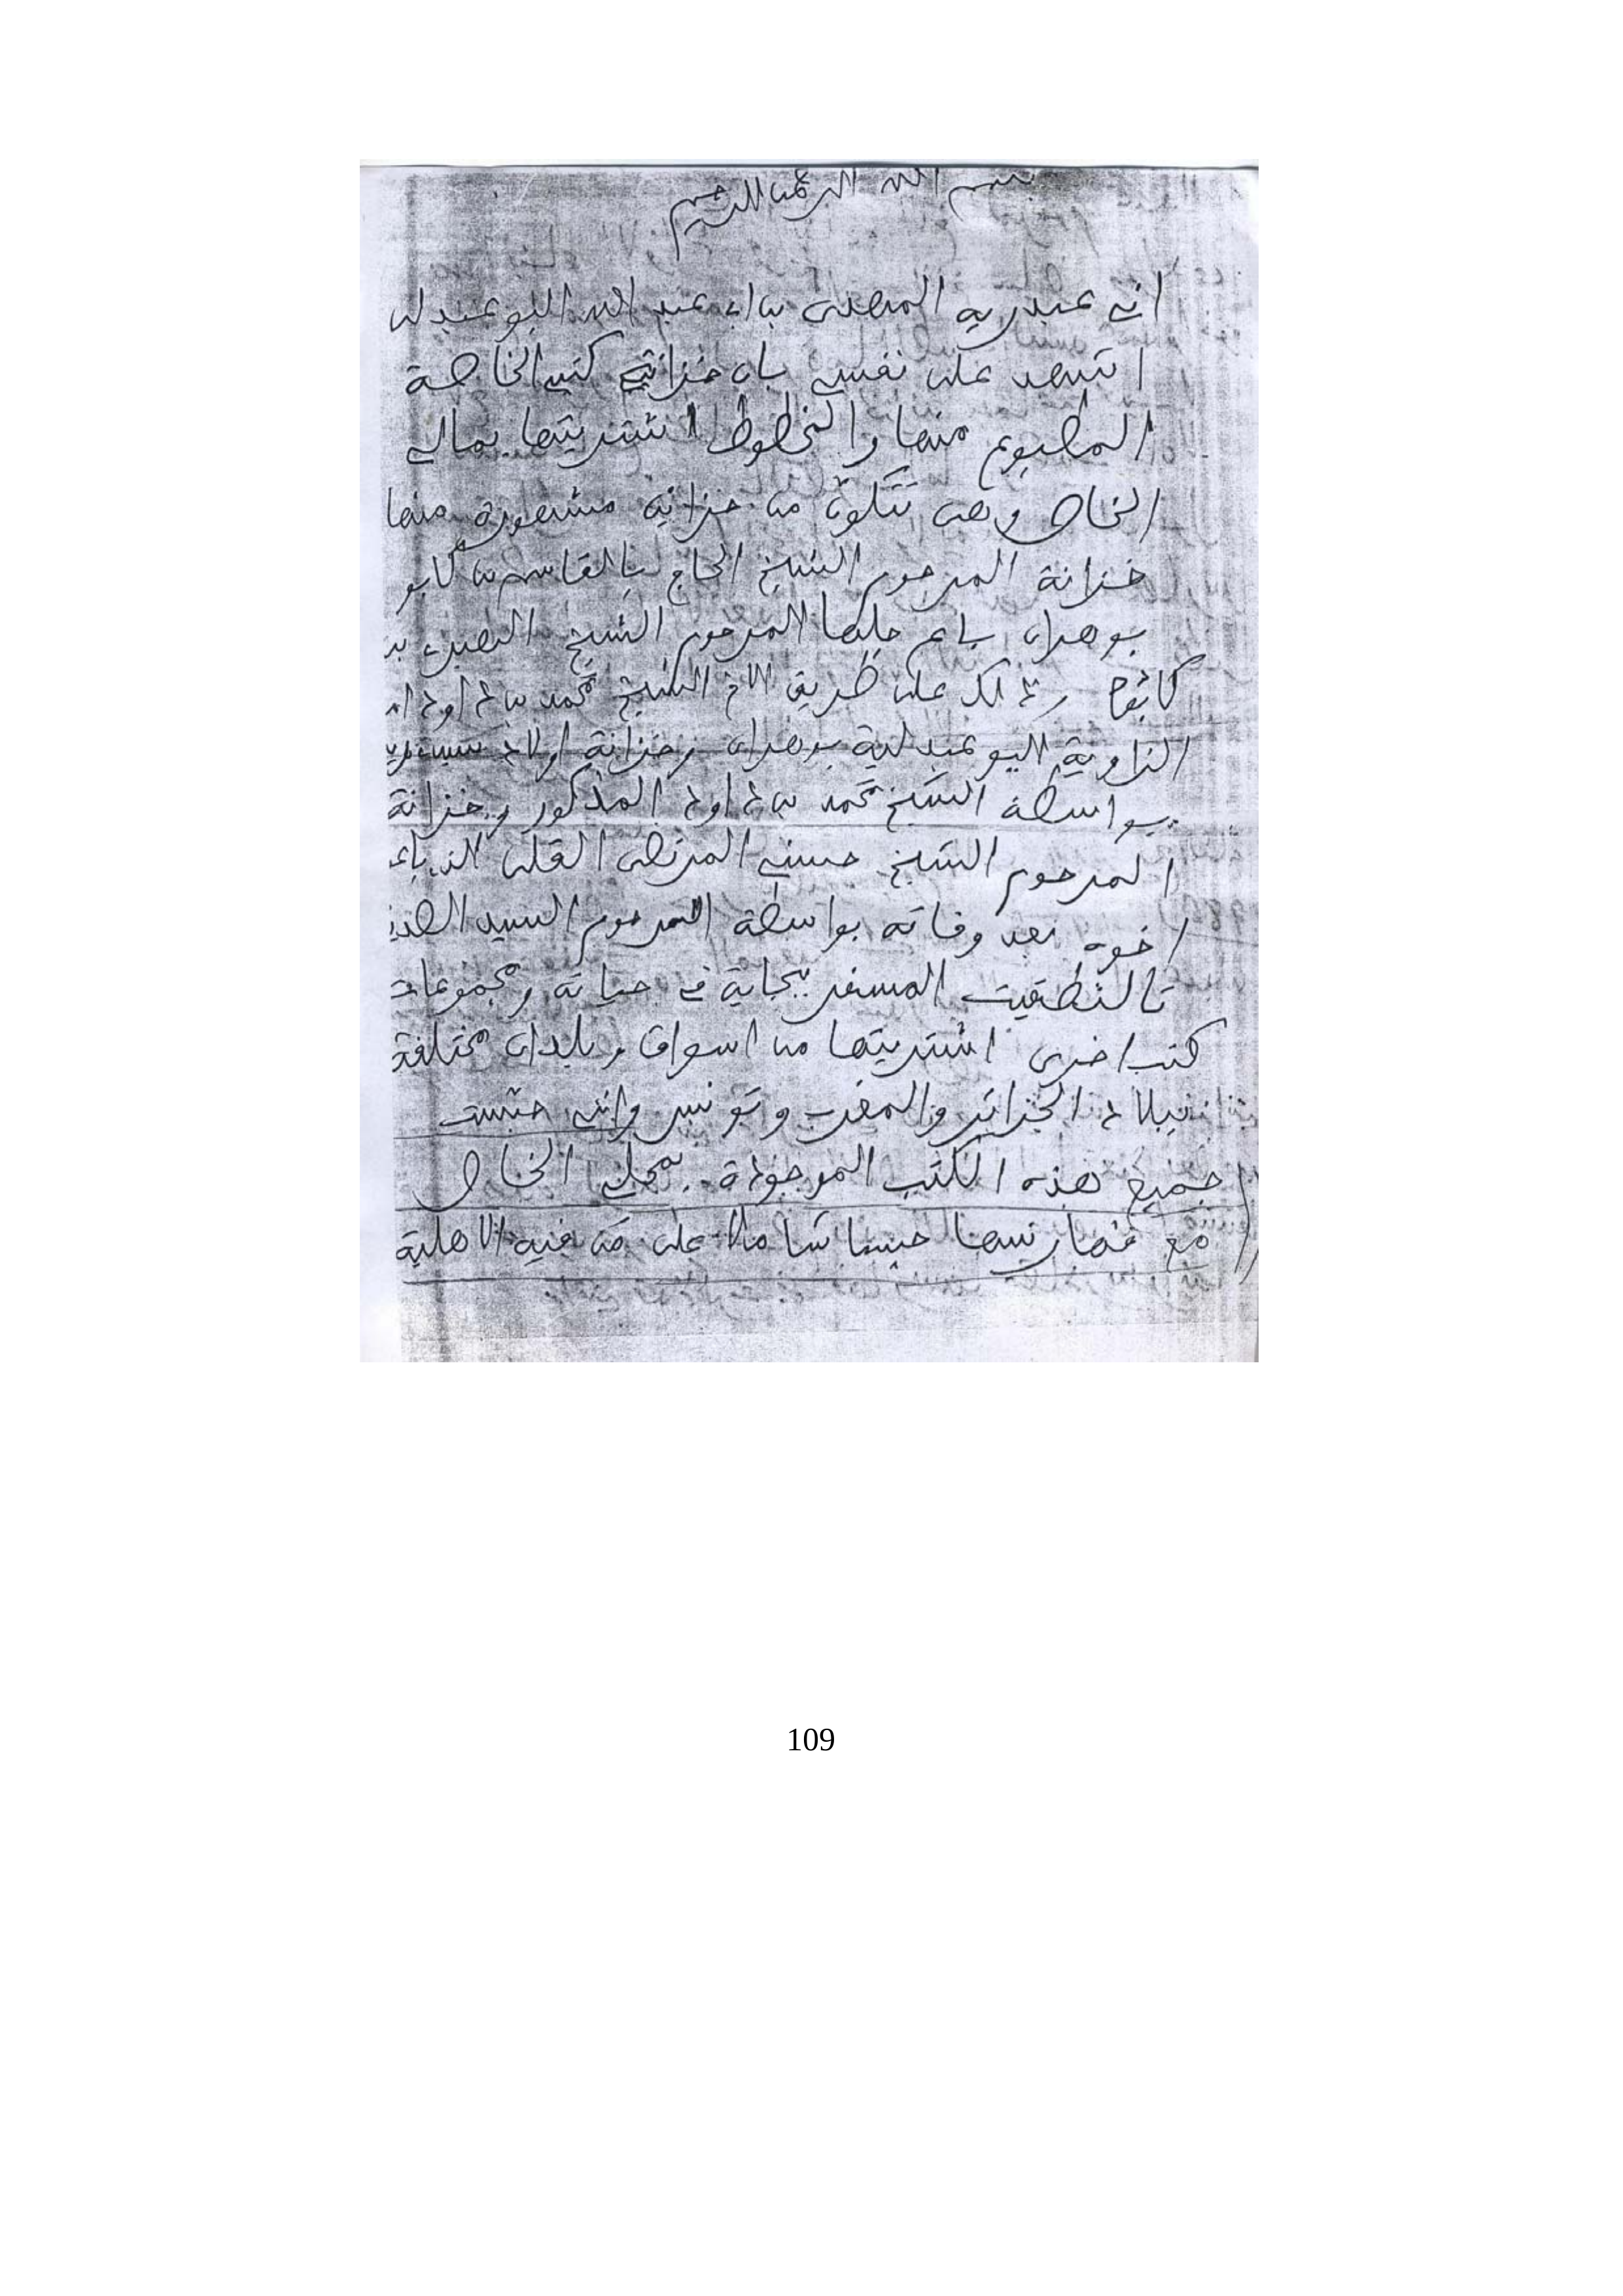 بسم الله الرحمن الرحيم
اني عبد ربه المهدي بن عبد الله البوعبدلي
اشهد على نفسي بان خزانتي كتبي الخاصة
المطبوع منها والمخطوط اشتريتها بمالي
الخاص وهي تتكون من خزانة مشهورة منها
خزانة المرحوم الشيخ الحاج بالقاسم بن كابو
بوهران باع جلها المرحوم الشيخ
وذلك على طريق الاخ الشيخ محمد بن داود
الزاوية البوعبدلية بوهران وخزانة اولاد
بواسطة الشيخ محمد بن داود المذكور وخزانة
المرحوم الشيخ حسني المرتضى القلي
اخوه بعد وفاته بواسطة المرحوم السيد
المسفر ببجاية في حياته ومجموعات
كتب اخرى اشتريتها من اسواق وبلدان مختلفة
ببلاد الجزائر والمغرب وتونس وانني حبست
جميع هذه الكتب الموجودة بمحلي الخاص
مع فهارسها حبسا شاملا على من فيه الاهلية
109